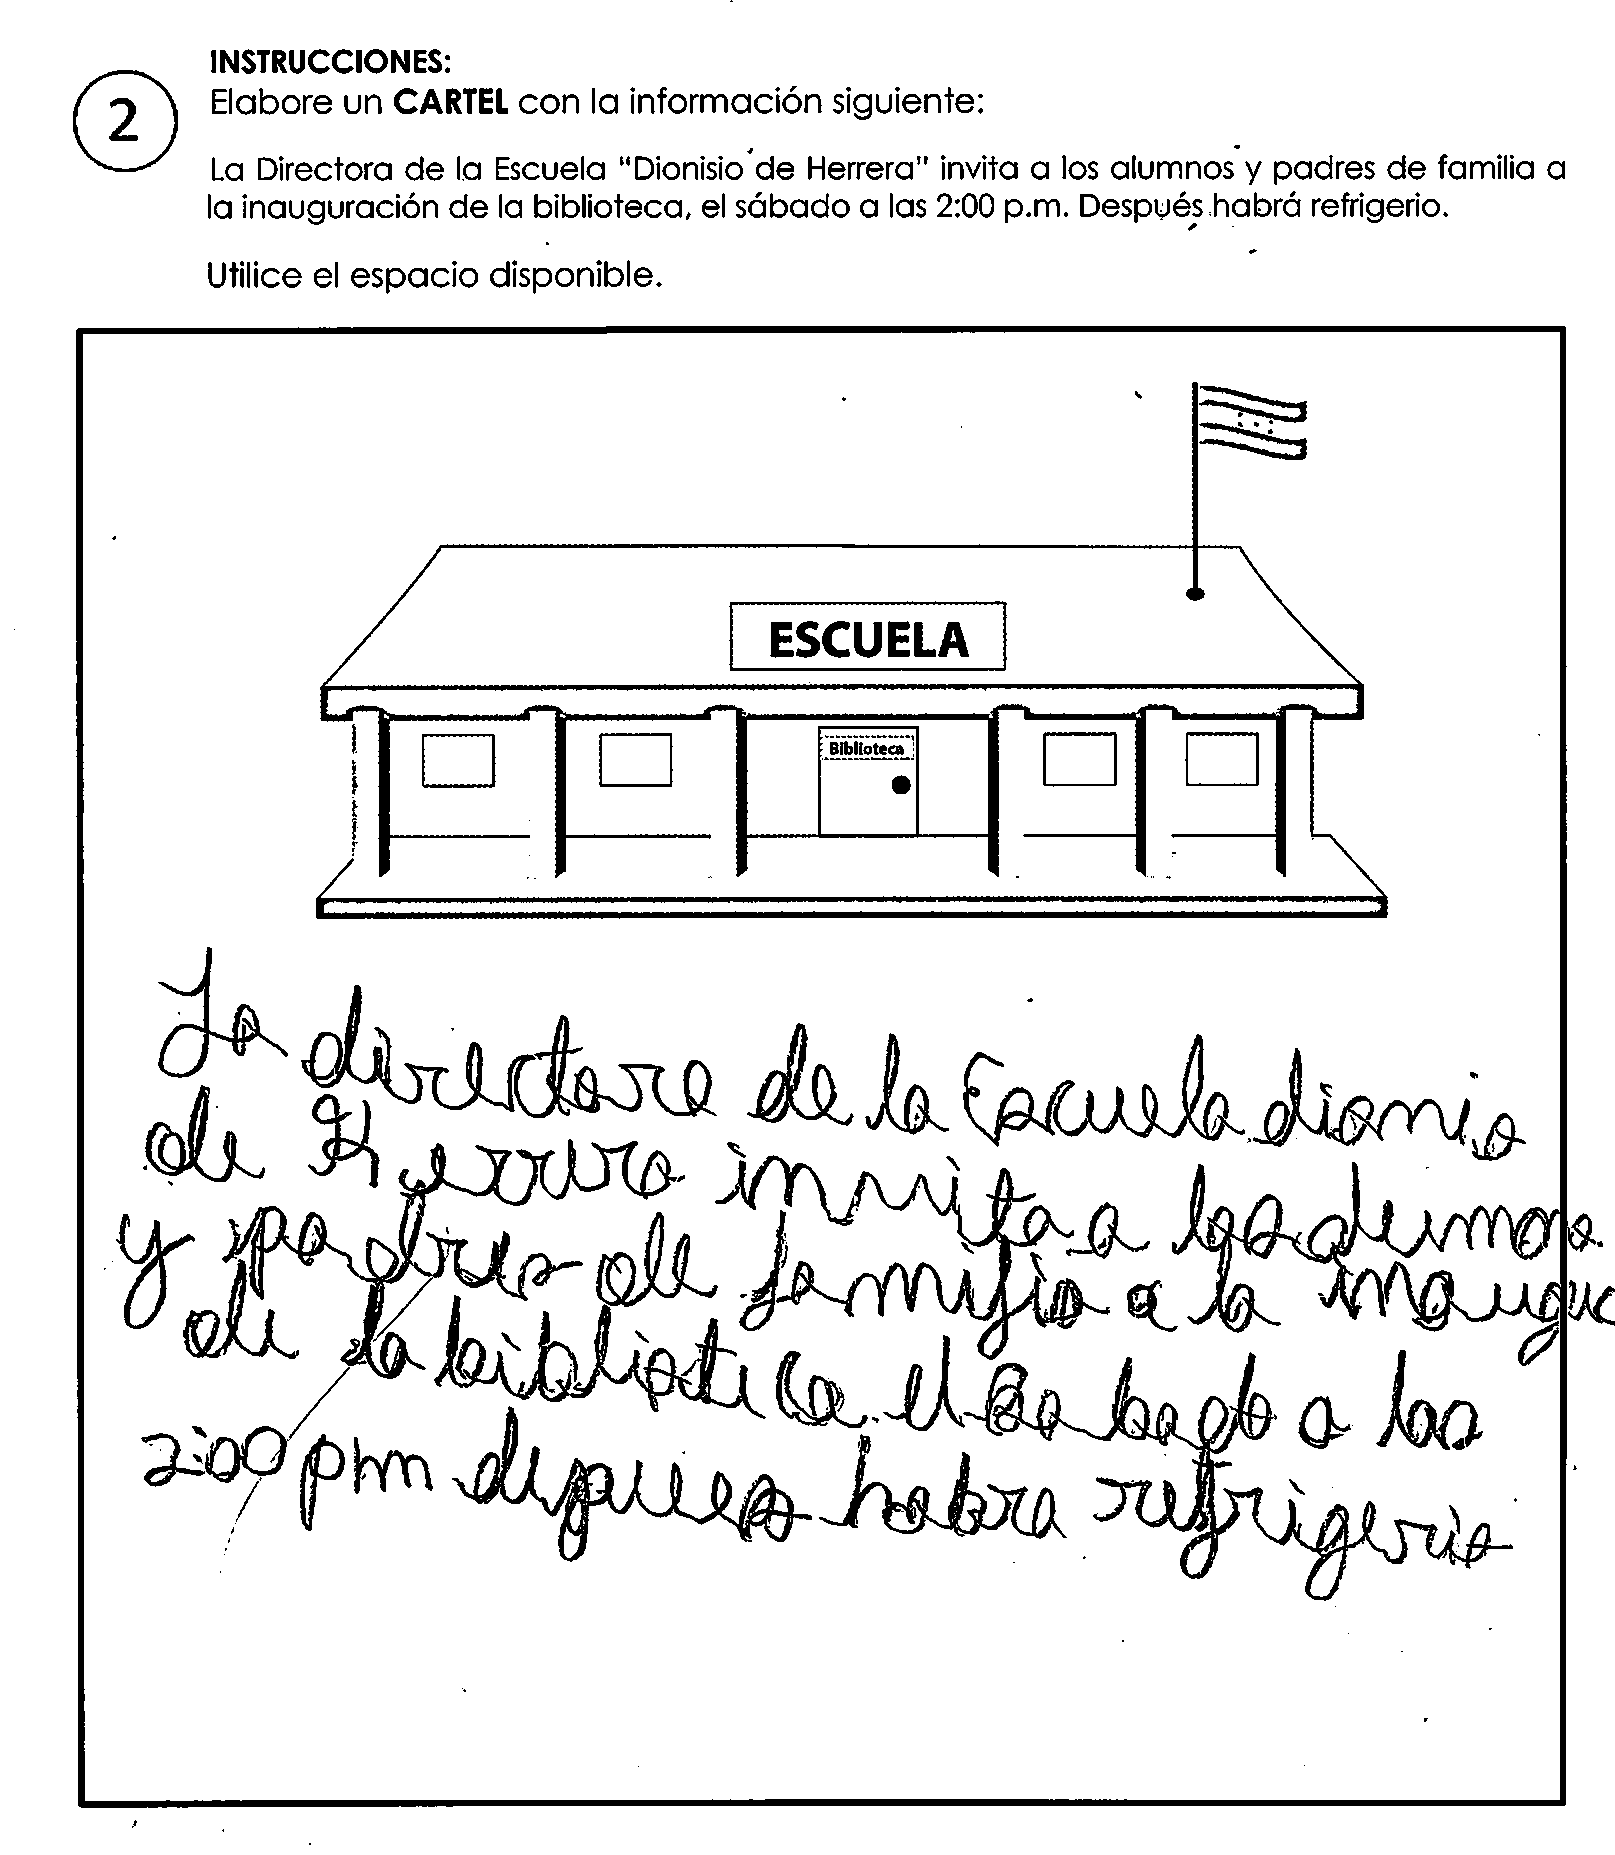 INSTRUCCIONES:
2
Elabore un CARTEL con la información siguiente:
La Directora de la Escuela "Dionisio de Herrera" invita a los alumnos y padres de familia a
la inauguración de la biblioteca, el sábado a las 2:00 p.m. Después habrá refrigerio.
Utilice el espacio disponible.
ESCUELA
Biblioteca
La directora de la Escuela dionisio
de Herrera invita a los alumnos
y padres de familia a la inaugu
de la biblioteca el sabado a las
2:00 pm despues habra refrigerio